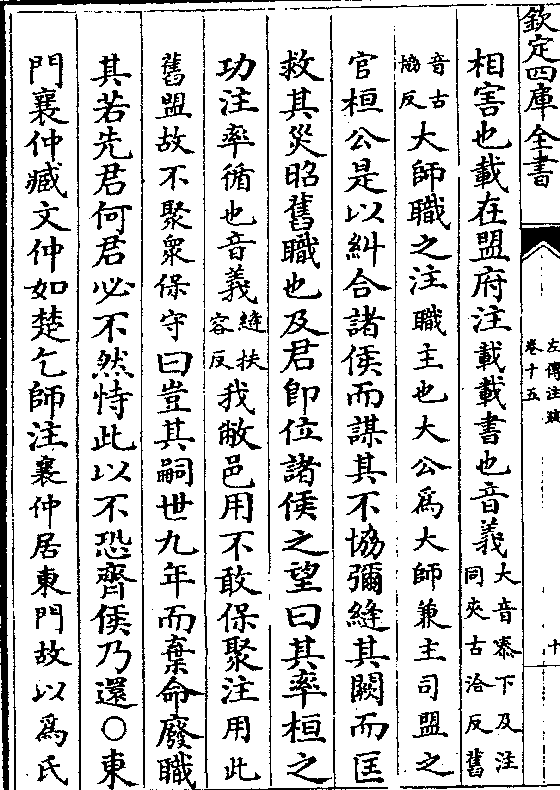 欽定四庫全書
左傳注疏
卷十五
十
相害也載在盟府注載載書也音義大音泰下及注同夾古洽反舊
音古協反大師職之注職主也大公為大師兼主司盟之
官桓公是以糾合諸侯而謀其不協彌縫其闕而匡
救其災昭舊職也及君即位諸侯之望曰其率桓之
功注率循也音義縫扶容反我敝邑用不敢保聚注用此
舊盟故不聚衆保守曰豈其嗣世九年而棄命廢職
其若先君何君必不然恃此以不恐齊侯乃還○東
門襄仲臧文仲如楚乞師注襄仲居東門故以為氏